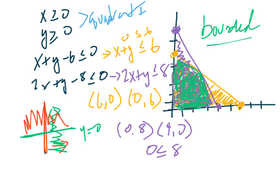 x ≥ 0 > quadrant I
y ≥ 0
0 ≤ 6
x+y-6 ≤ 0 → x+y ≤ 6
2x+y-8 ≤ 0 → 2x+y ≤ 8
(6,0) (0,6)
y=0
(0,8) (4,0)
0 ≤ 8
bounded